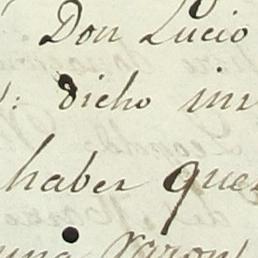 Don Lucio
: dicho ins
haber que
razon